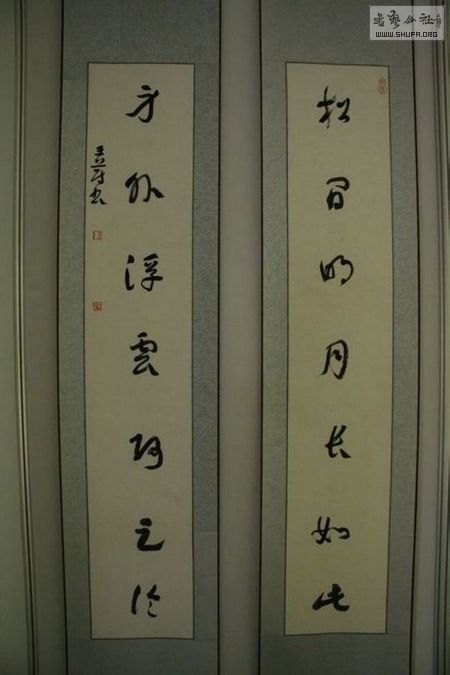 書藝公社
WWW.SHUFA.ORG
松间明月长如此
身外浮雲何足论